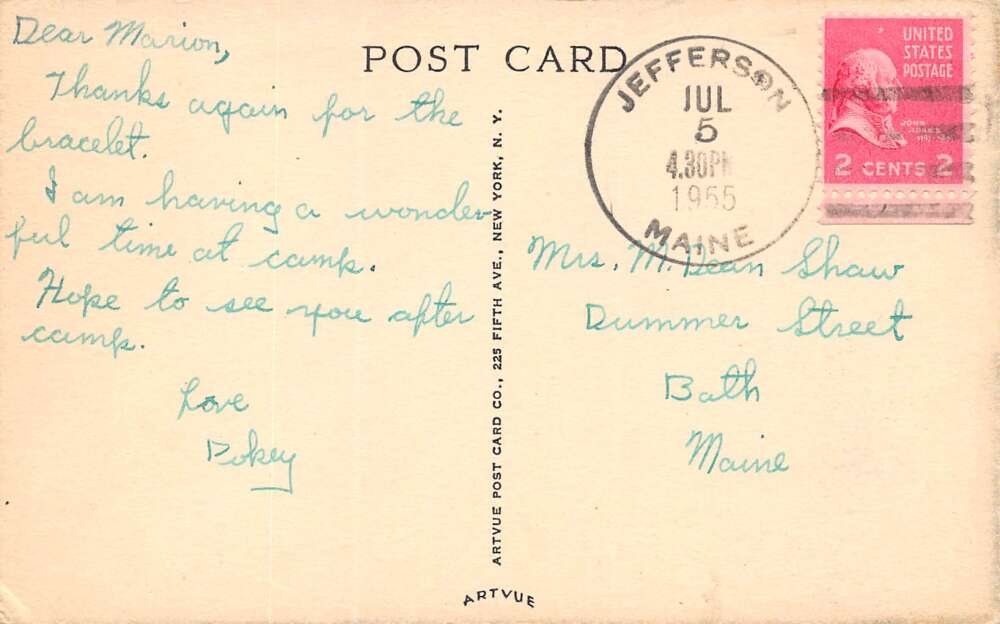 Dear Marion,
Thanks again for the
bracelet.
I am having a wonder
ful time at camp.
Hope to see you after
camp.
Love
Pokey
POST CARD
ARTVUE POST CARD CO., 225 FIFTH AVE., NEW YORK, N. Y.
ARTVUE
JEFFERSON
JUL
5
4.30PM
1955
MAINE
UNITED
STATES
POSTAGE
JOHN
ADAMS
2 CENTS 2
Mrs. M. Dean Shaw
Dummer Street
Bath
Maine